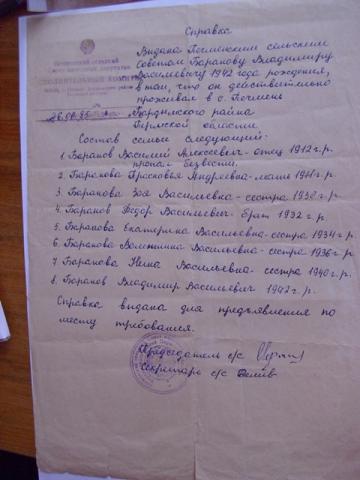 Справка
Выдана Печменским сельским
Советом Баранову Владимиру
Васильевичу 1942 года рождения,
в том, что он действительно
проживал в с. Печмень
Бардымского района
Пермской области.
Состав семьи следующий:
1. Баранов Василий Алексеевич - отец 1912 г.р.
пропал безвести.
2. Баранова Прасковья Андреевна - мать 1911 г.р.
3. Баранова Зоя Васильевна - сестра 1930 г.р.
4. Баранов Федор Васильевич - брат 1932 г.р.
5. Баранова Екатерина Васильевна - сестра 1934 г.р.
6. Баранова Валентина Васильевна - сестра 1936 г.р.
7 Баранова Нина Васильевна - сестра 1940 г.р.
8. Баранов Владимир Васильевич 1942 г.р.
Справка выдана для предъявления по
месту требования.
Председатель с/с
Секретарь с/с